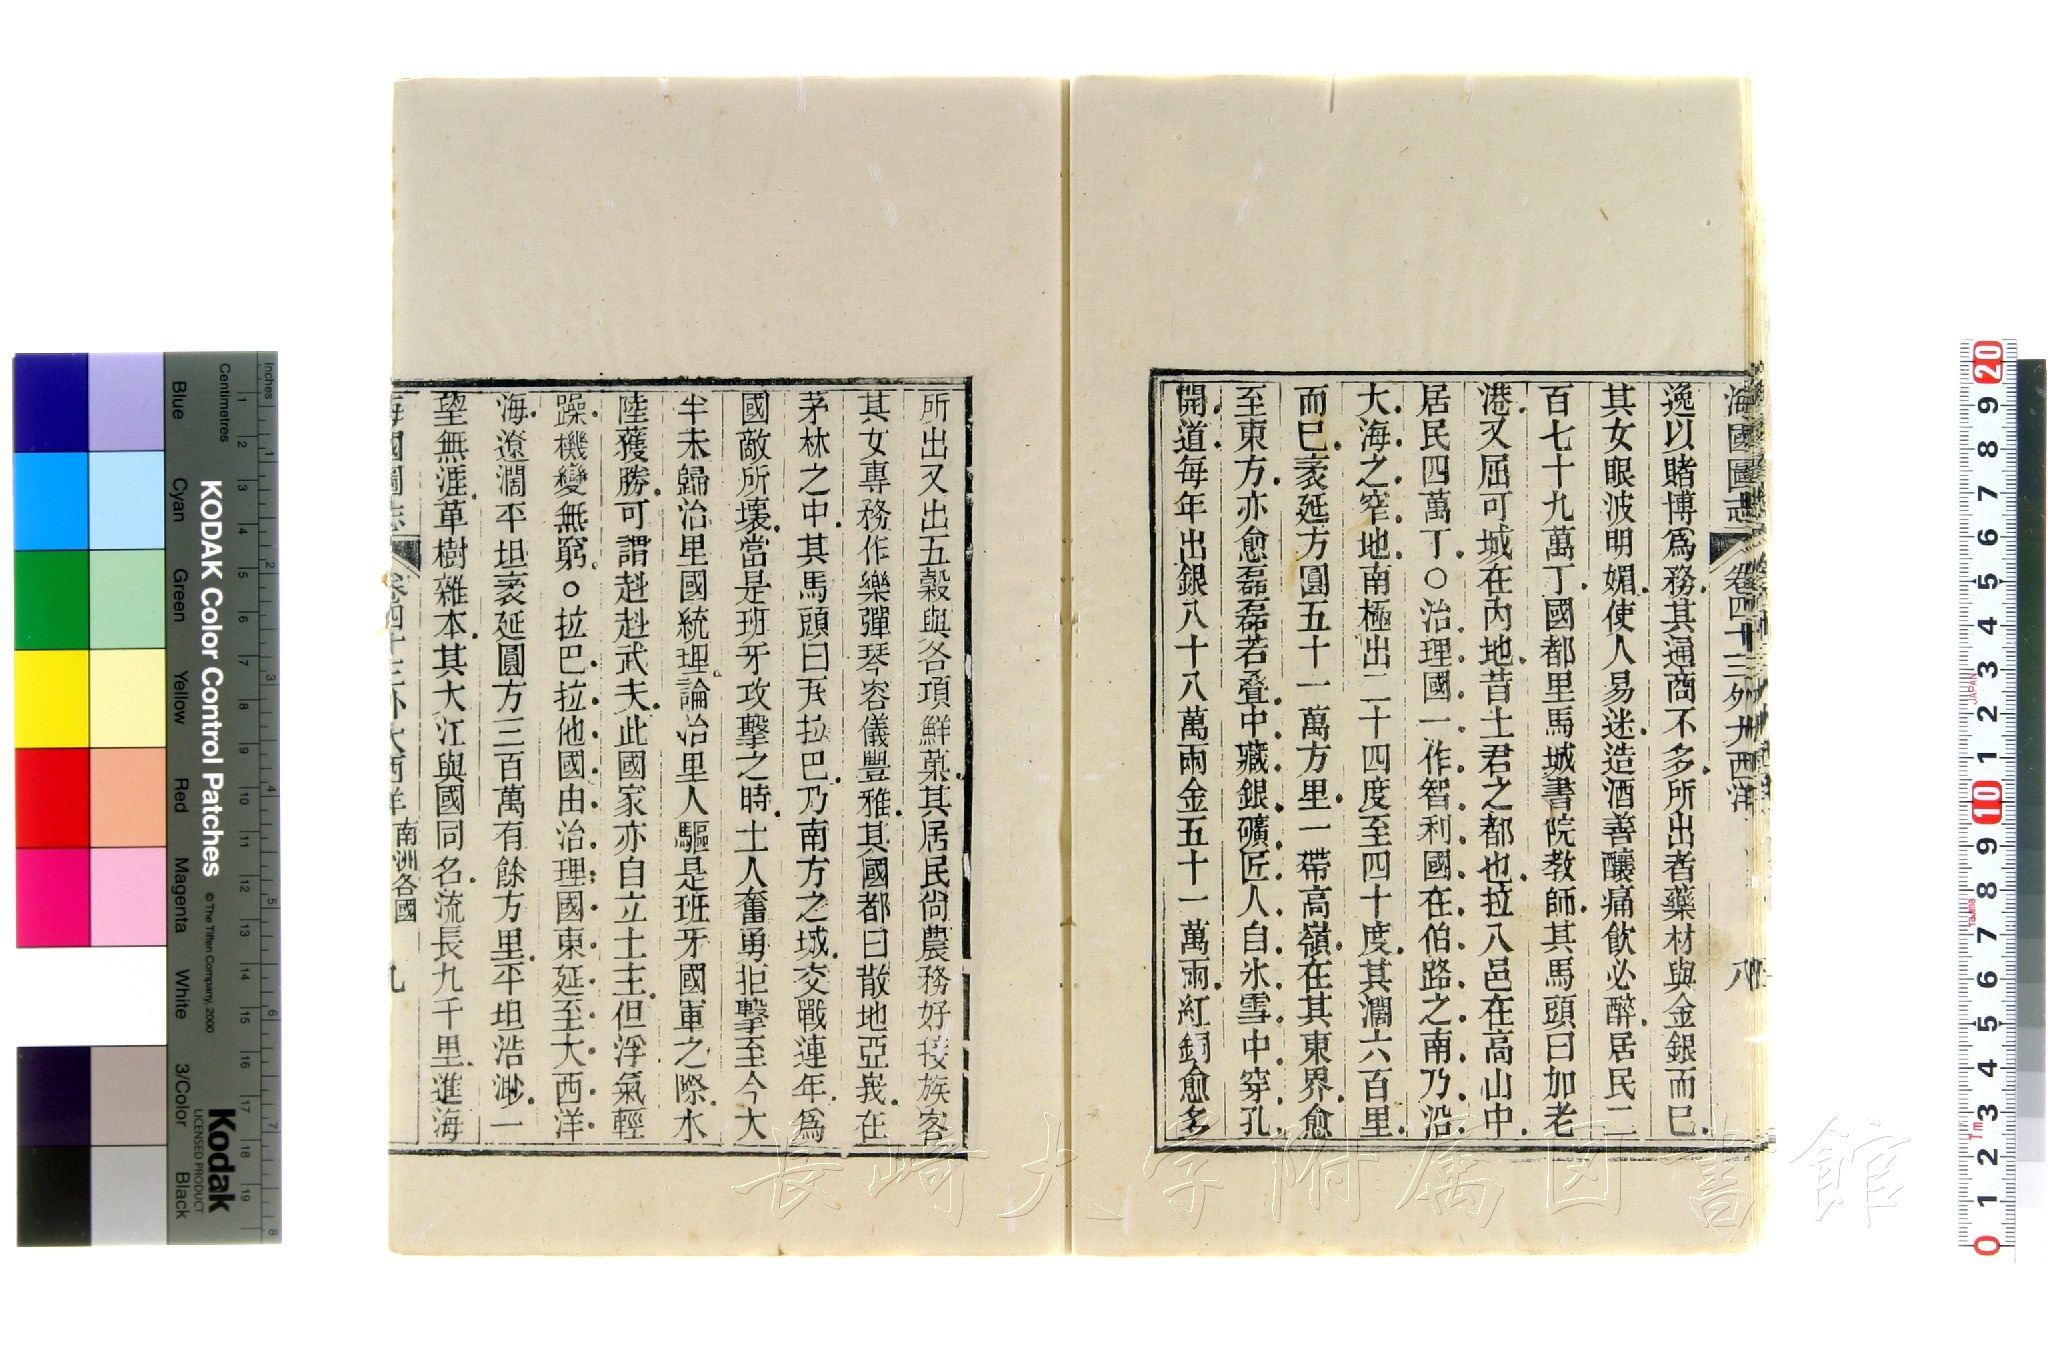 海國圖志 卷四十三外大西洋 八
逸以賭博爲務其通商不多所出者藥材與金銀而已
其女眼波明媚使人易迷造酒善釀痛飲必醉居民二
百七十九萬丁國都里馬城書院教師其馬頭曰加老
港又屈可城在內地昔土君之都也拉八邑在高山中
居民四萬丁○治理國一作智利國在伯路之南乃沿
大海之窄地南極出二十四度至四十度其濶六百里
而已袤延方圓五十一萬方里一帶高嶺在其東界愈
至東方亦愈磊磊若疊中藏銀礦匠人自氷雪中穿孔
開道每年出銀八十八萬兩金五十一萬兩紅銅愈多
所出又出五穀與各項鮮菓其居民尙農務好接族客
其女專務作樂彈琴容儀豐雅其國都曰散地亞峩在
茅林之中其馬頭曰瓦拉巴乃南方之城交戰連年爲
國敵所壞當是班牙攻擊之時土人奮勇拒擊至今大
半未歸治里國統理論治里人驅是班牙國軍之際水
陸獲勝可謂赳赳武夫此國家亦自立土主但浮氣輕
躁機變無窮○拉巴拉他國由治理國東延至大西洋
海遼濶平坦袤延圓方三百萬有餘方里平坦浩渺一
望無涯草樹雜本其大江與國同名流長九千里進海
海國圖志 卷四十三外大西洋 南洲各國 九
長崎大学附属図書館
inches
Centimetres
KODAK Color Control Patches
© The Tiffen Company, 2000
Kodak
LICENSED PRODUCT
Blue
Cyan
Green
Yellow
Red
Magenta
White
3/Color
Black